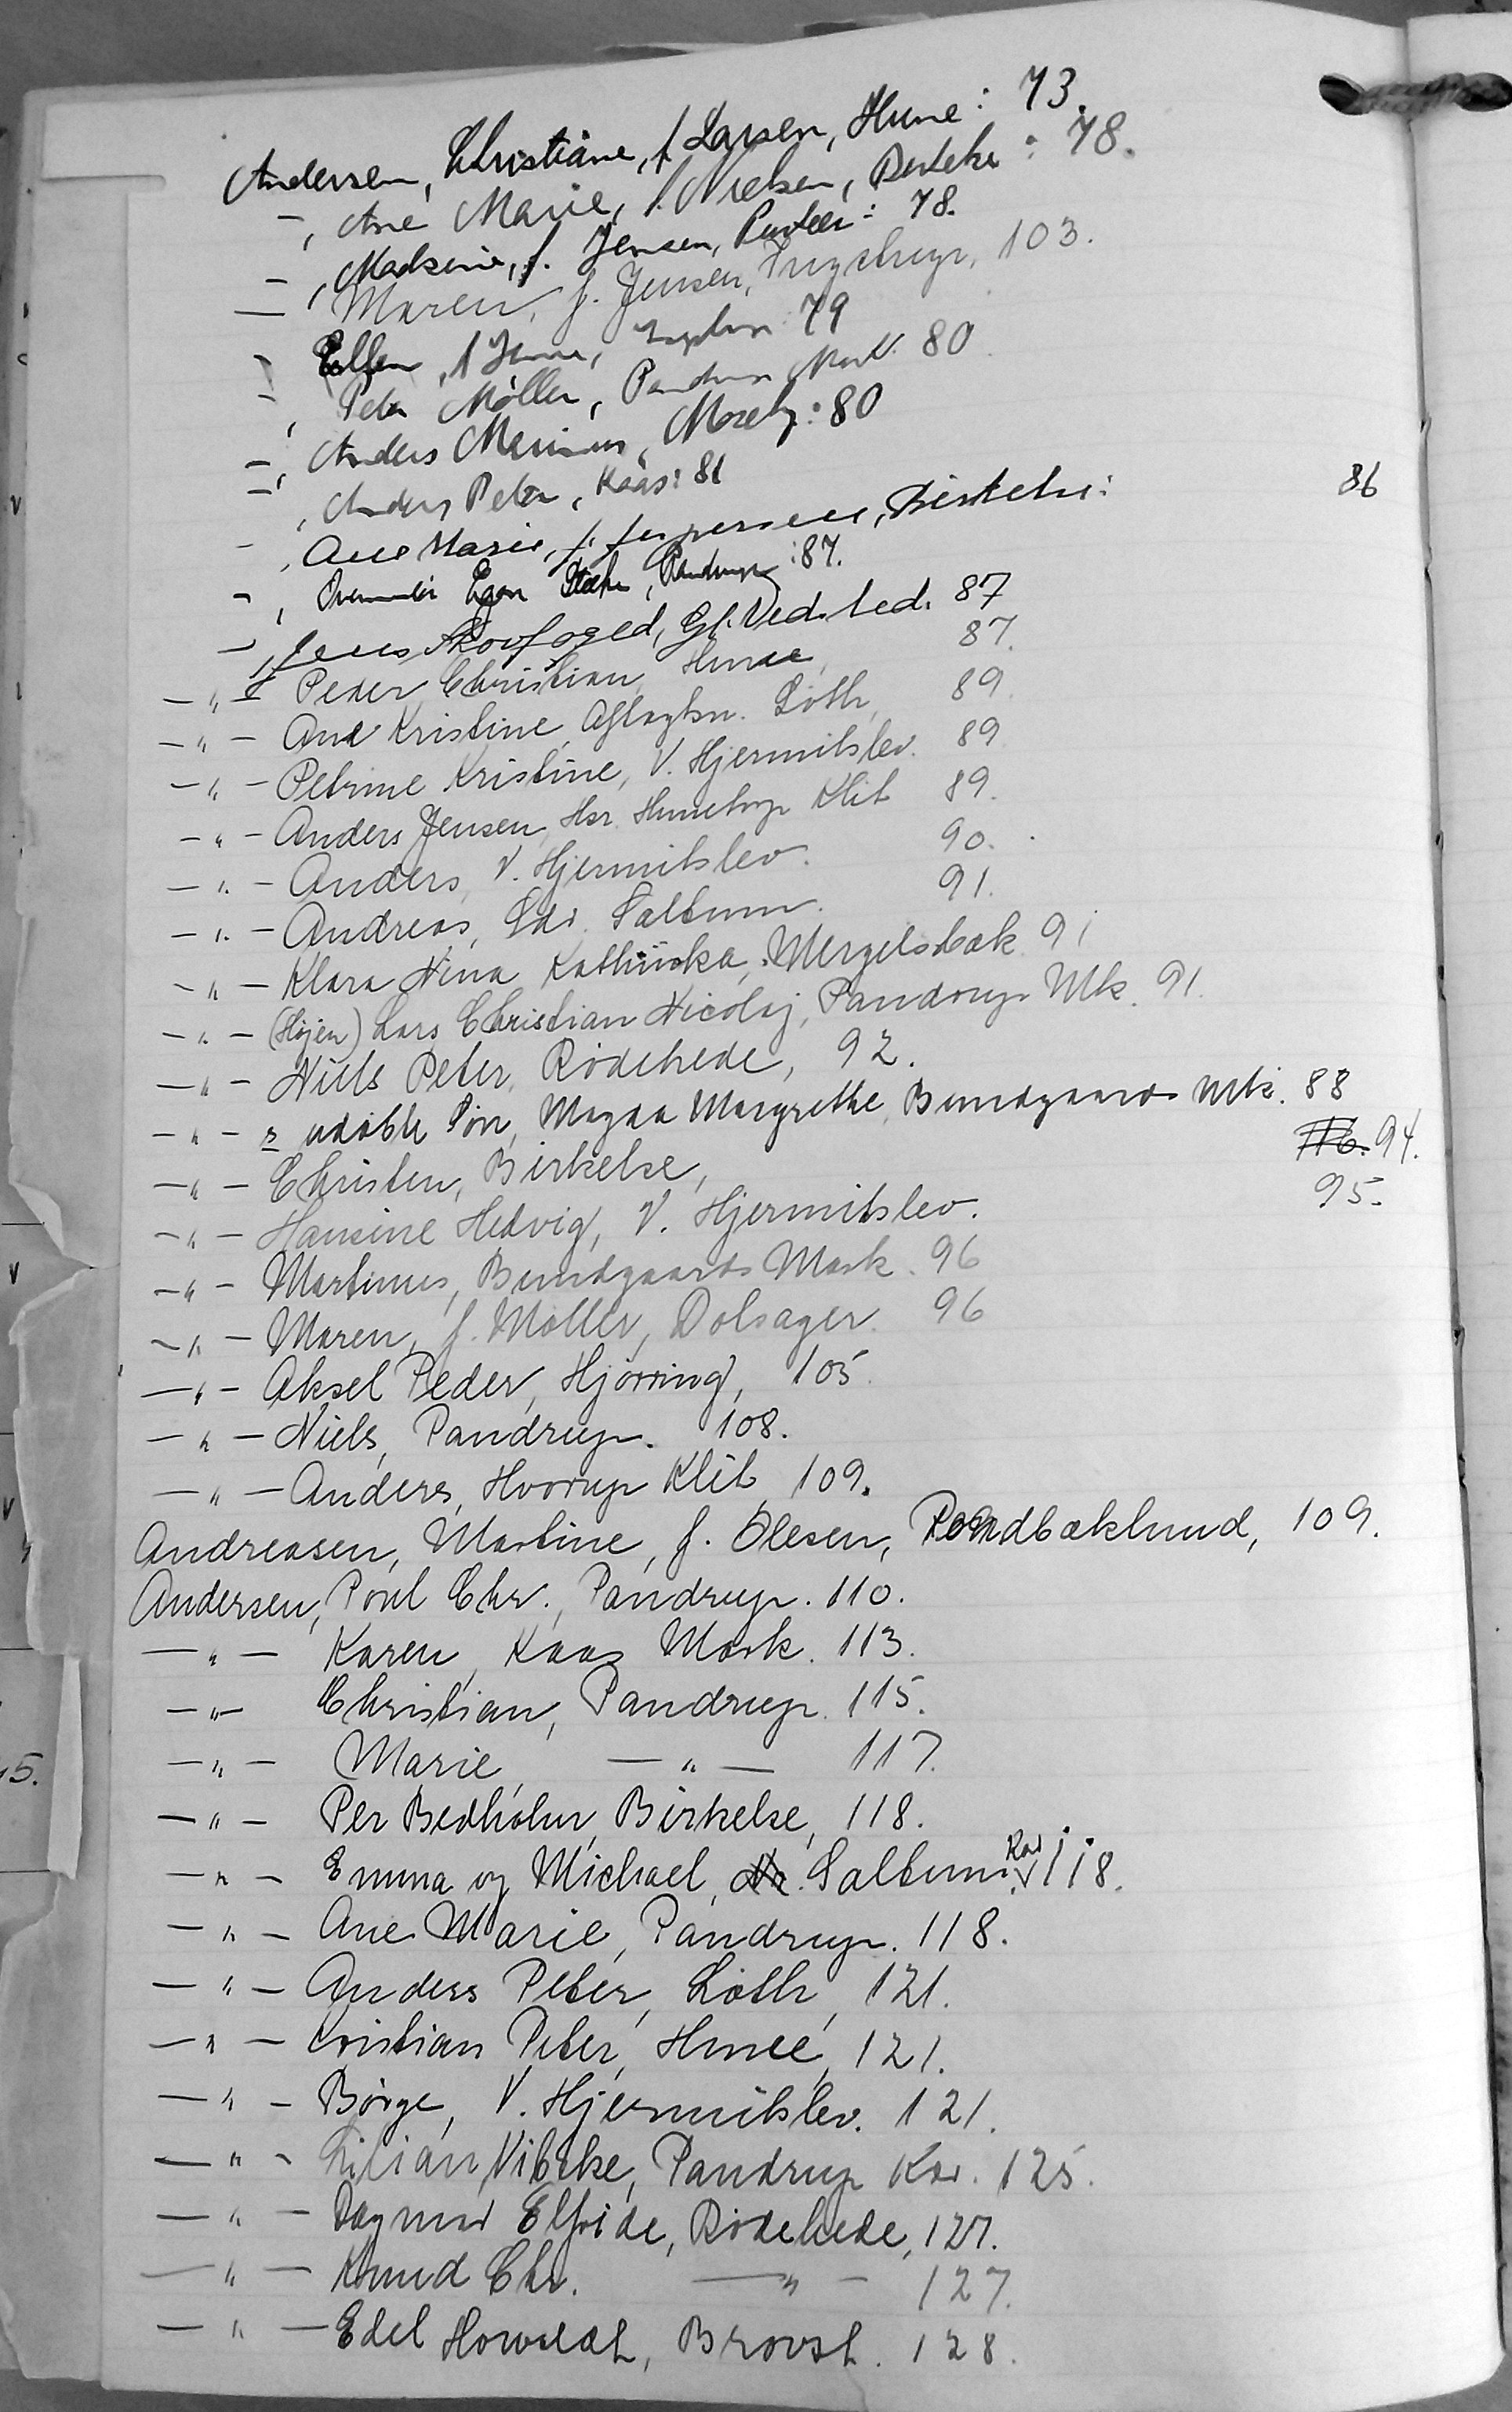 Andersen, Christiane, f. Larsen, Hune: 73.
-, Ane Marie, f. Nielsen, Birkelse: 78.
-, Madsine, f. Jensen, 78.
— Maren, f. Jensen, Ingstrup, 103.
- Ellen, f. 79
-, Peter Möller, Pandrup Mark. 80
-, Anders Marinus, Moseby: 80
-, Anders Peter, Kaas: 81
-, Ane Marie, f. Jespersen, Birkelse: 86
-, Egon Pandrup: 87.
-, Jens Skovfoged, Gl. Vedsted. 87
-"- Peder Christian, Hune, 87.
-"- Ane Kristine, Aftægtsn. Löth, 89.
-"- Petrine Kristine, V. Hjermitslev. 89
-"- Anders Jensen, Hsr. Hunetorp Klit 89.
-"- Anders, V. Hjermitslev. 90.
-"- Andreas, Sdr. Saltum. 91.
-"- Klara Nina Kathinka, Mergelsbæk 91
-"- (Höjen) Lars Christian Nicolaj, Pandrup Mk. 91.
-"- Niels Peter, Rödehede, 92.
-"- s udöbte Sön, Magda Margrethe, Bundgaards Mk. 88
-"- Christen, Birkelse, 116. 94.
-"- Hansine Hedvig, V. Hjermitslev. 95.
-"- Martinus, Bundgaards Mark. 96
-"- Maren, f. Möller, Dolsager. 96
-"- Aksel Peder, Hjörring, 105.
-"- Niels, Pandrup. 108.
-"- Anders, Hvorup Klit, 109.
Andreasen, Martine, f. Olesen, 109.
Andersen, Poul Chr., Pandrup. 110.
-"- Karen, Kaas Mark. 113.
-"- Christian, Pandrup. 115.
-"- Marie, -"- 117.
-"- Per Bedholm, Birkelse, 118.
-"- Emma og Michael, Saltum. Kær 118.
-"- Ane Marie, Pandrup. 118.
-"- Anders Peter, Löth, 121.
-"- Cristian Peter, Hune, 121.
-"- Börge, V. Hjermitslev. 121.
-"- Lilian Vibeke, Pandrup Kær. 125.
-"- Dagmar Elfride, Rödehede, 127.
-"- Knud Chr. -"- 127.
-"- Edel Brovst. 128.